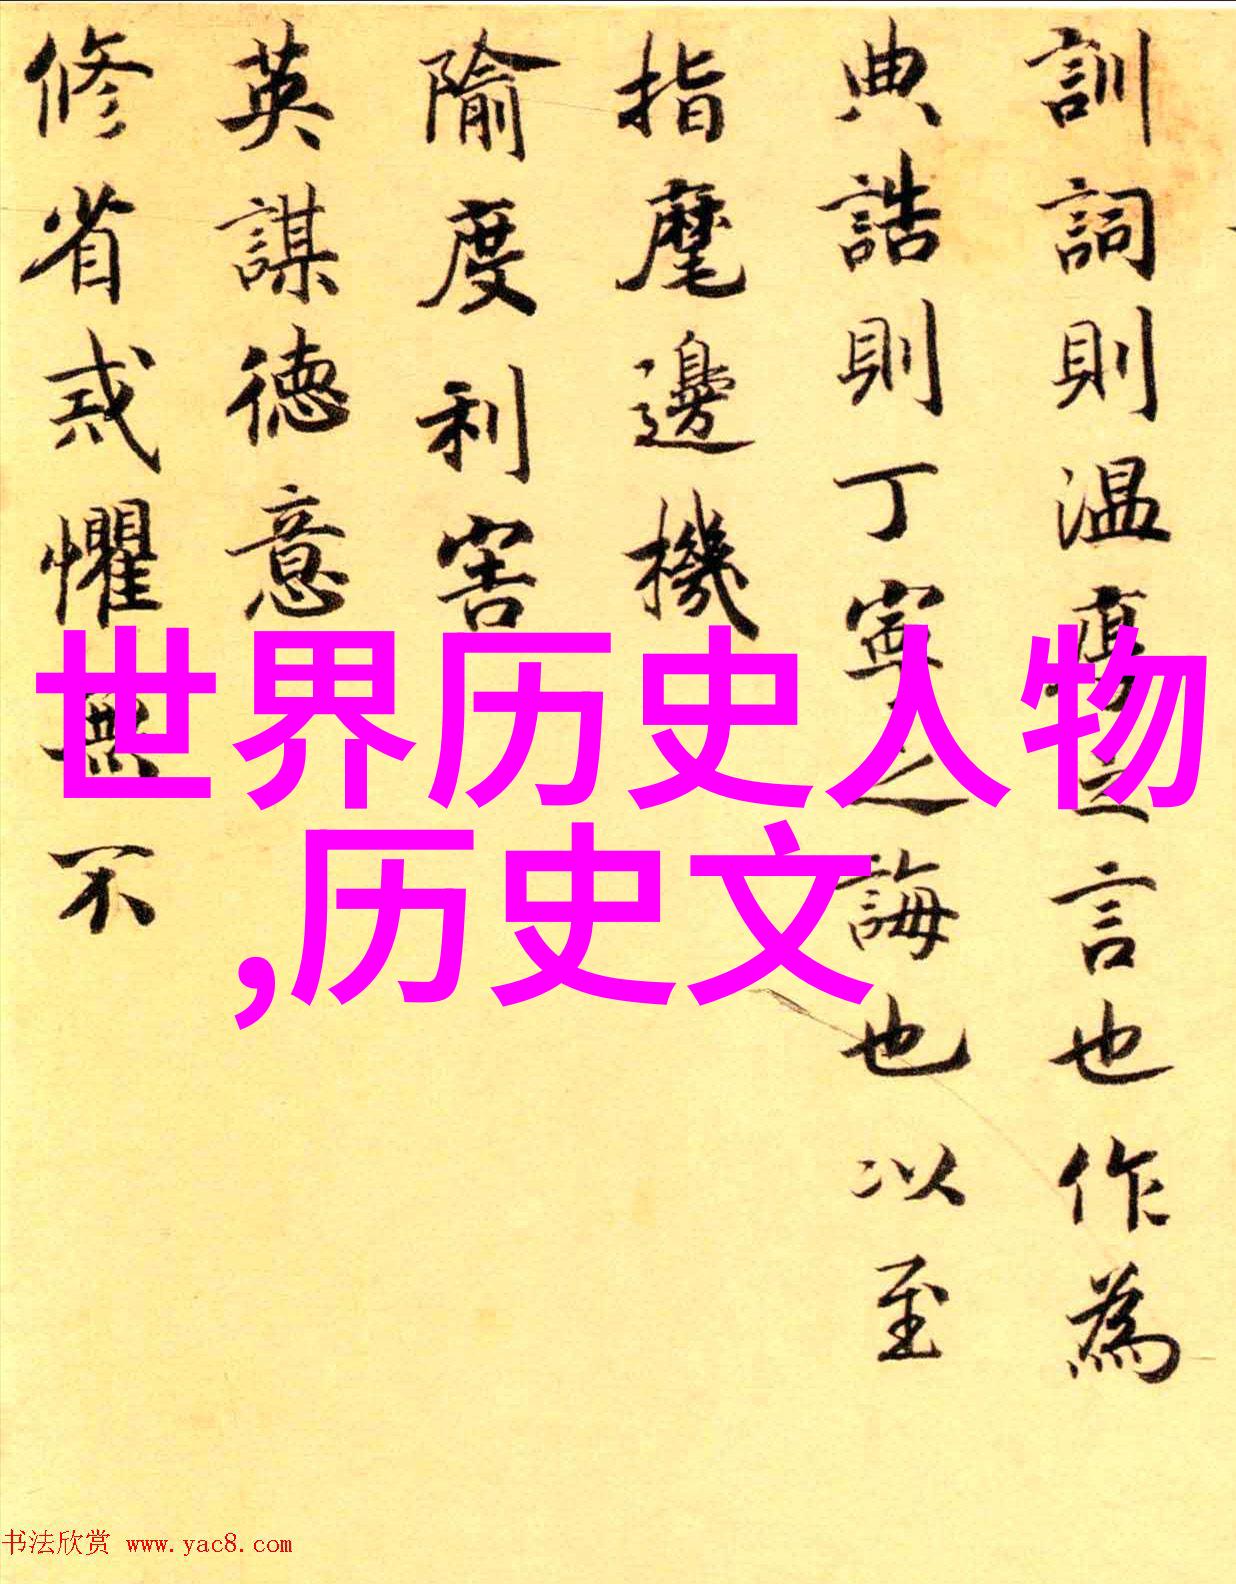 訓詞則温厚之言也作為
典誥則丁寧之誨也以至
指麾邊機
隃度利害
英謀德意
修省戒懼無不
世界历史人物
,历史文
书法欣赏 www.yac8.com